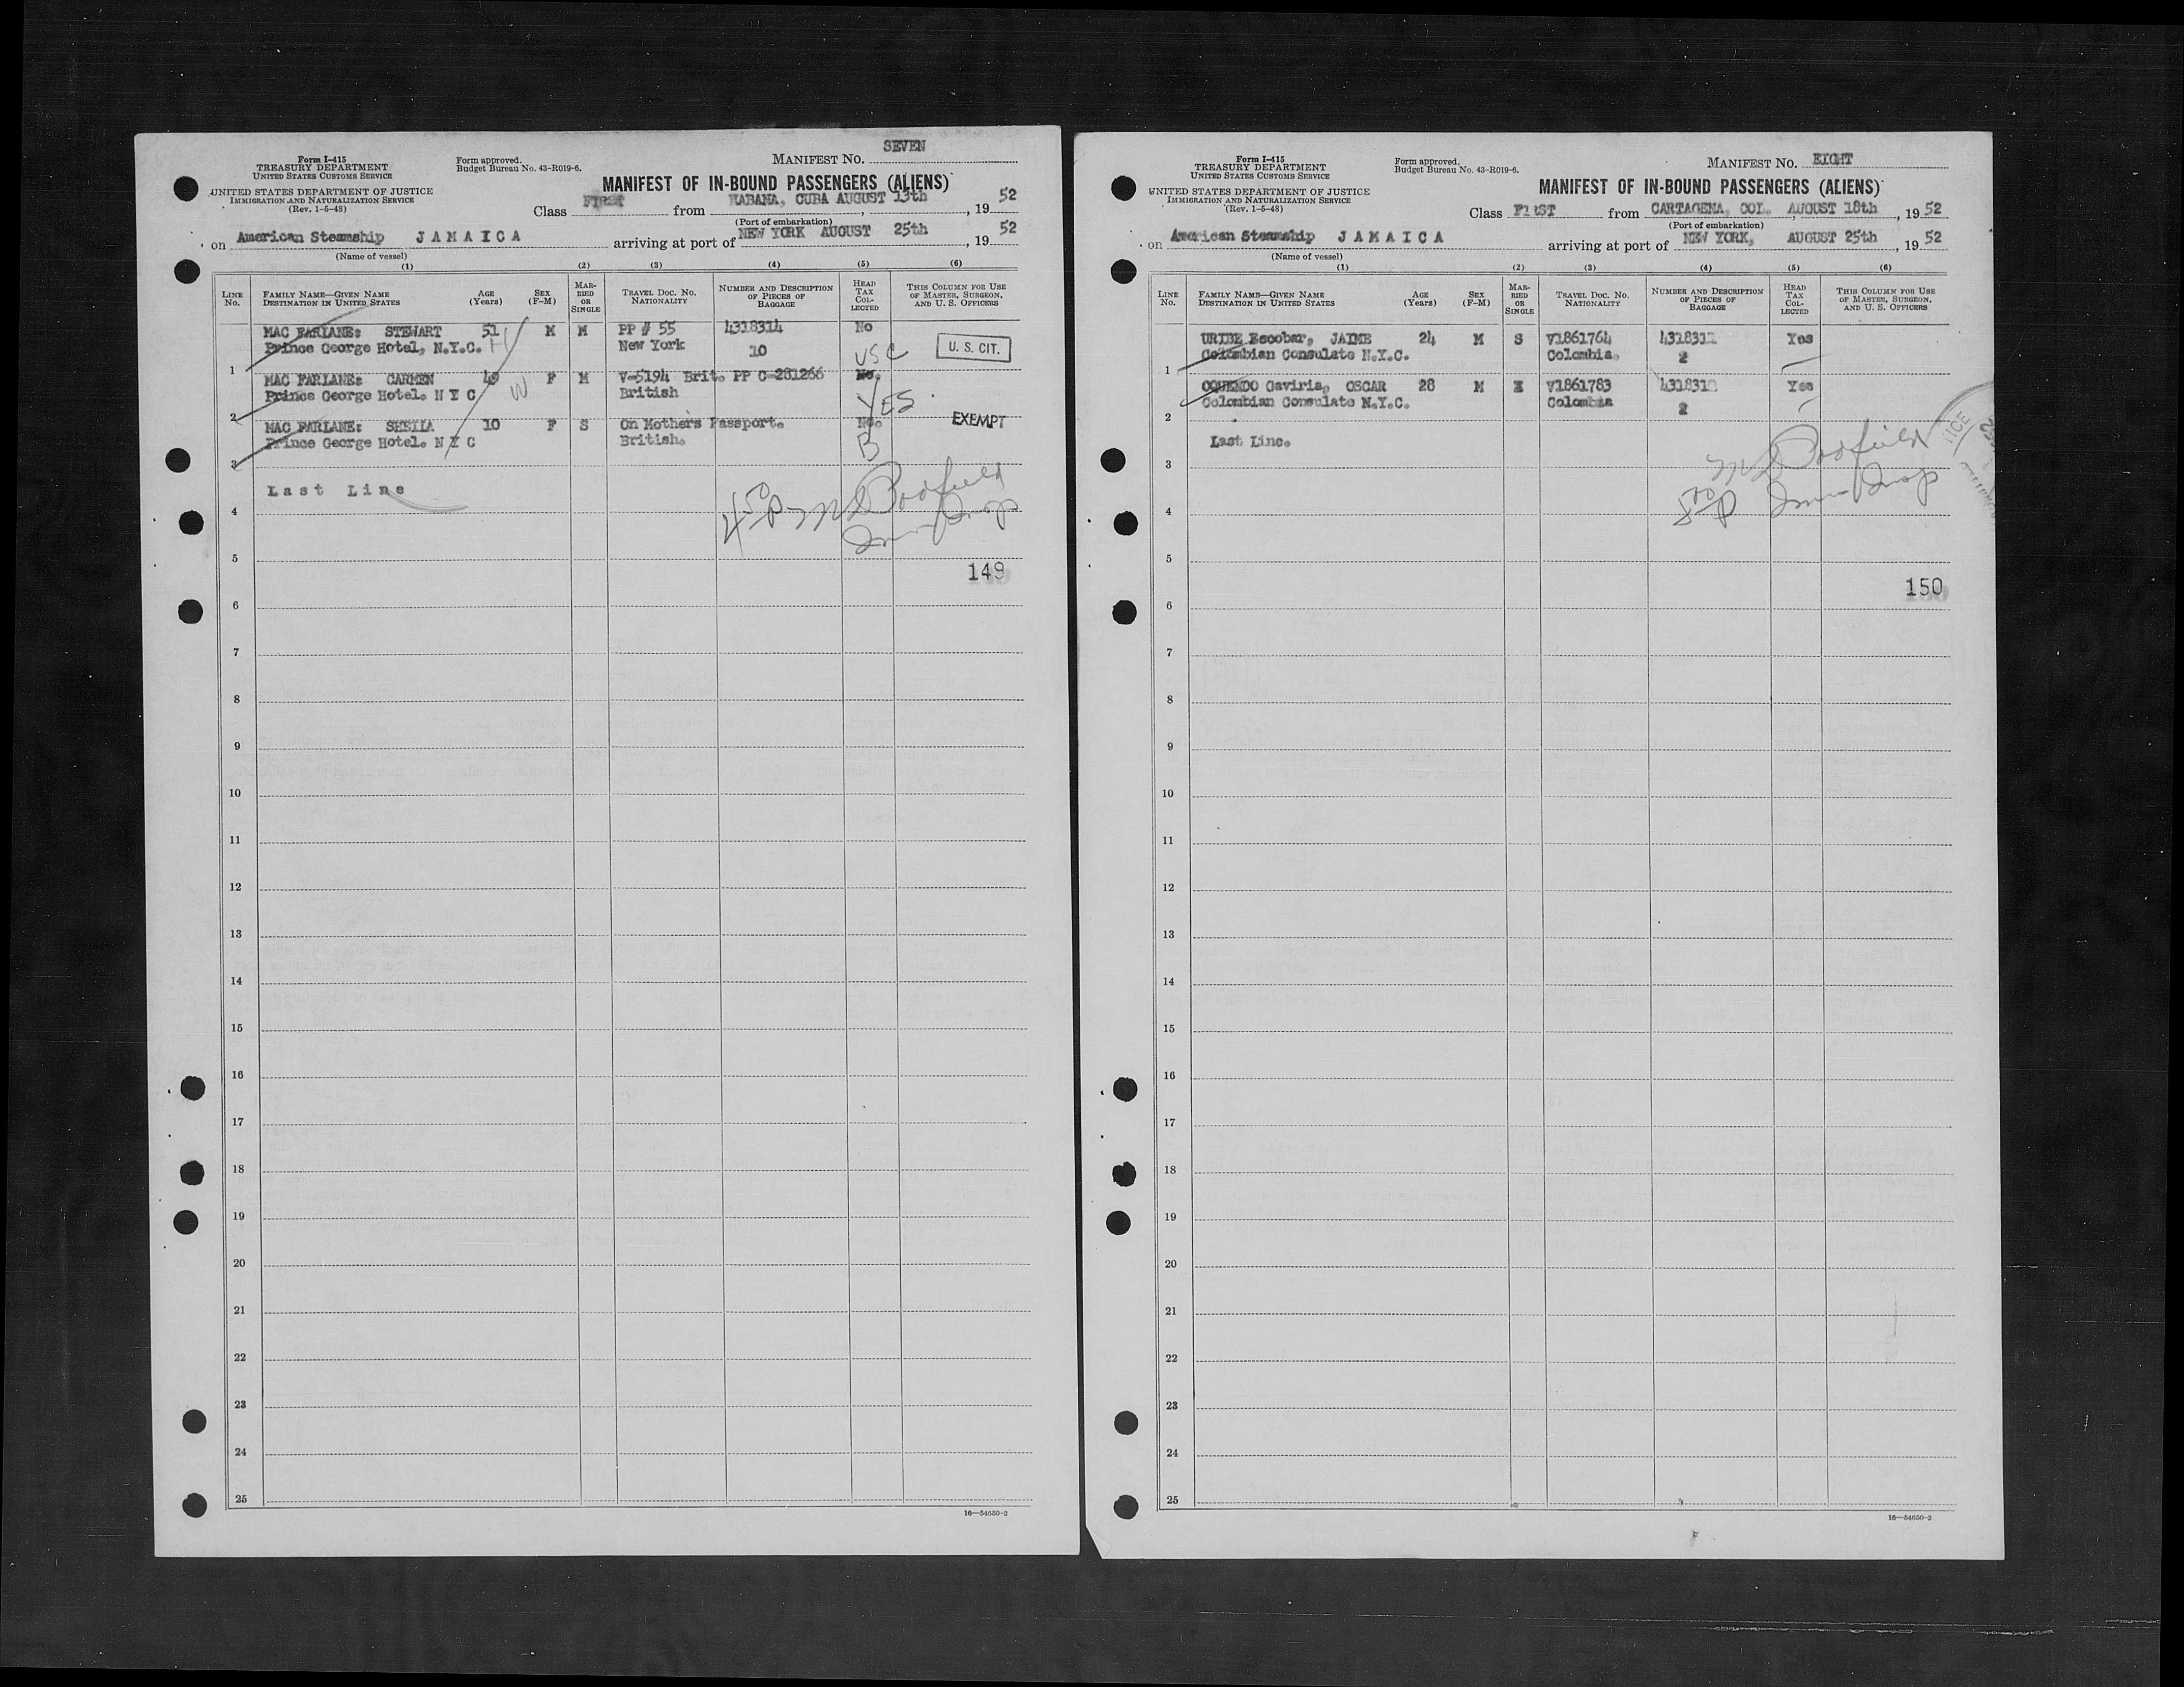 Form I-415
TREASURY DEPARTMENT
UNITED STATES CUSTOMS SERVICE
UNITED STATES DEPARTMENT OF JUSTICE
IMMIGRATION AND NATURALIZATION SERVICE
(Rev. 1-5-48)
Form approved.
Budget Bureau No. 43-R019-6.
MANIFEST NO. SEVEN
MANIFEST OF IN-BOUND PASSENGERS (ALIENS)
Class FIRST from HABANA, CUBA AUGUST 13th, 19 52
(Port of embarkation)
on American Steamship JAMAICA arriving at port of NEW YORK AUGUST 25th, 19 52
(Name of vessel)
(1) (2) (3) (4) (5) (6)
LINE No. FAMILY NAME—GIVEN NAME DESTINATION IN UNITED STATES AGE (Years) SEX (F-M) MARRIED OR SINGLE TRAVEL DOC. NO. NATIONALITY NUMBER AND DESCRIPTION OF PIECES OF BAGGAGE HEAD TAX COLLECTED THIS COLUMN FOR USE OF MASTER, SURGEON, AND U. S. OFFICERS
MAC FARLANE: STEWART 51 H M M PP # 55 4318314 No
1 Prince George Hotel, N.Y.C. New York 10 USC U. S. CIT.
MAC FARLANE: CARMEN 49 W F M V-5194 Brit. PP C-281266 No.
2 Prince George Hotel. N Y C British YES
MAC FARLANE: SHEILA 10 F S On Mothers Passport. No. EXEMPT
3 Prince George Hotel. N Y C British. B
Last Line
4
5
149
6
7
8
9
10
11
12
13
14
15
16
17
18
19
20
21
22
23
24
25
16—54650-2
Form I-415
TREASURY DEPARTMENT
UNITED STATES CUSTOMS SERVICE
UNITED STATES DEPARTMENT OF JUSTICE
IMMIGRATION AND NATURALIZATION SERVICE
(Rev. 1-5-48)
Form approved.
Budget Bureau No. 43-R019-6.
MANIFEST NO. EIGHT
MANIFEST OF IN-BOUND PASSENGERS (ALIENS)
Class FIRST from CARTAGENA, COL. AUGUST 18th, 19 52
(Port of embarkation)
on American Steamship JAMAICA arriving at port of NEW YORK, AUGUST 25th, 19 52
(Name of vessel)
(1) (2) (3) (4) (5) (6)
LINE No. FAMILY NAME—GIVEN NAME DESTINATION IN UNITED STATES AGE (Years) SEX (F-M) MARRIED OR SINGLE TRAVEL DOC. NO. NATIONALITY NUMBER AND DESCRIPTION OF PIECES OF BAGGAGE HEAD TAX COLLECTED THIS COLUMN FOR USE OF MASTER, SURGEON, AND U. S. OFFICERS
URIBE Escobar, JAIME 24 M S V1861764 Yes
1 Colombian Consulate N.Y.C. Colombia. 2
OQUENDO Gaviria, OSCAR 28 M V1861783 Yes
2 Colombian Consulate N.Y.C. Colombia 2
Last Line.
3
4
5
150
6
7
8
9
10
11
12
13
14
15
16
17
18
19
20
21
22
23
24
25
16—54650-2